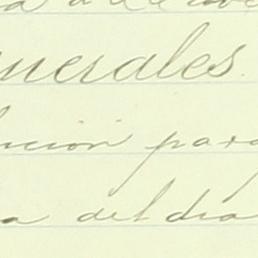 nerales.
lución para
a del dia